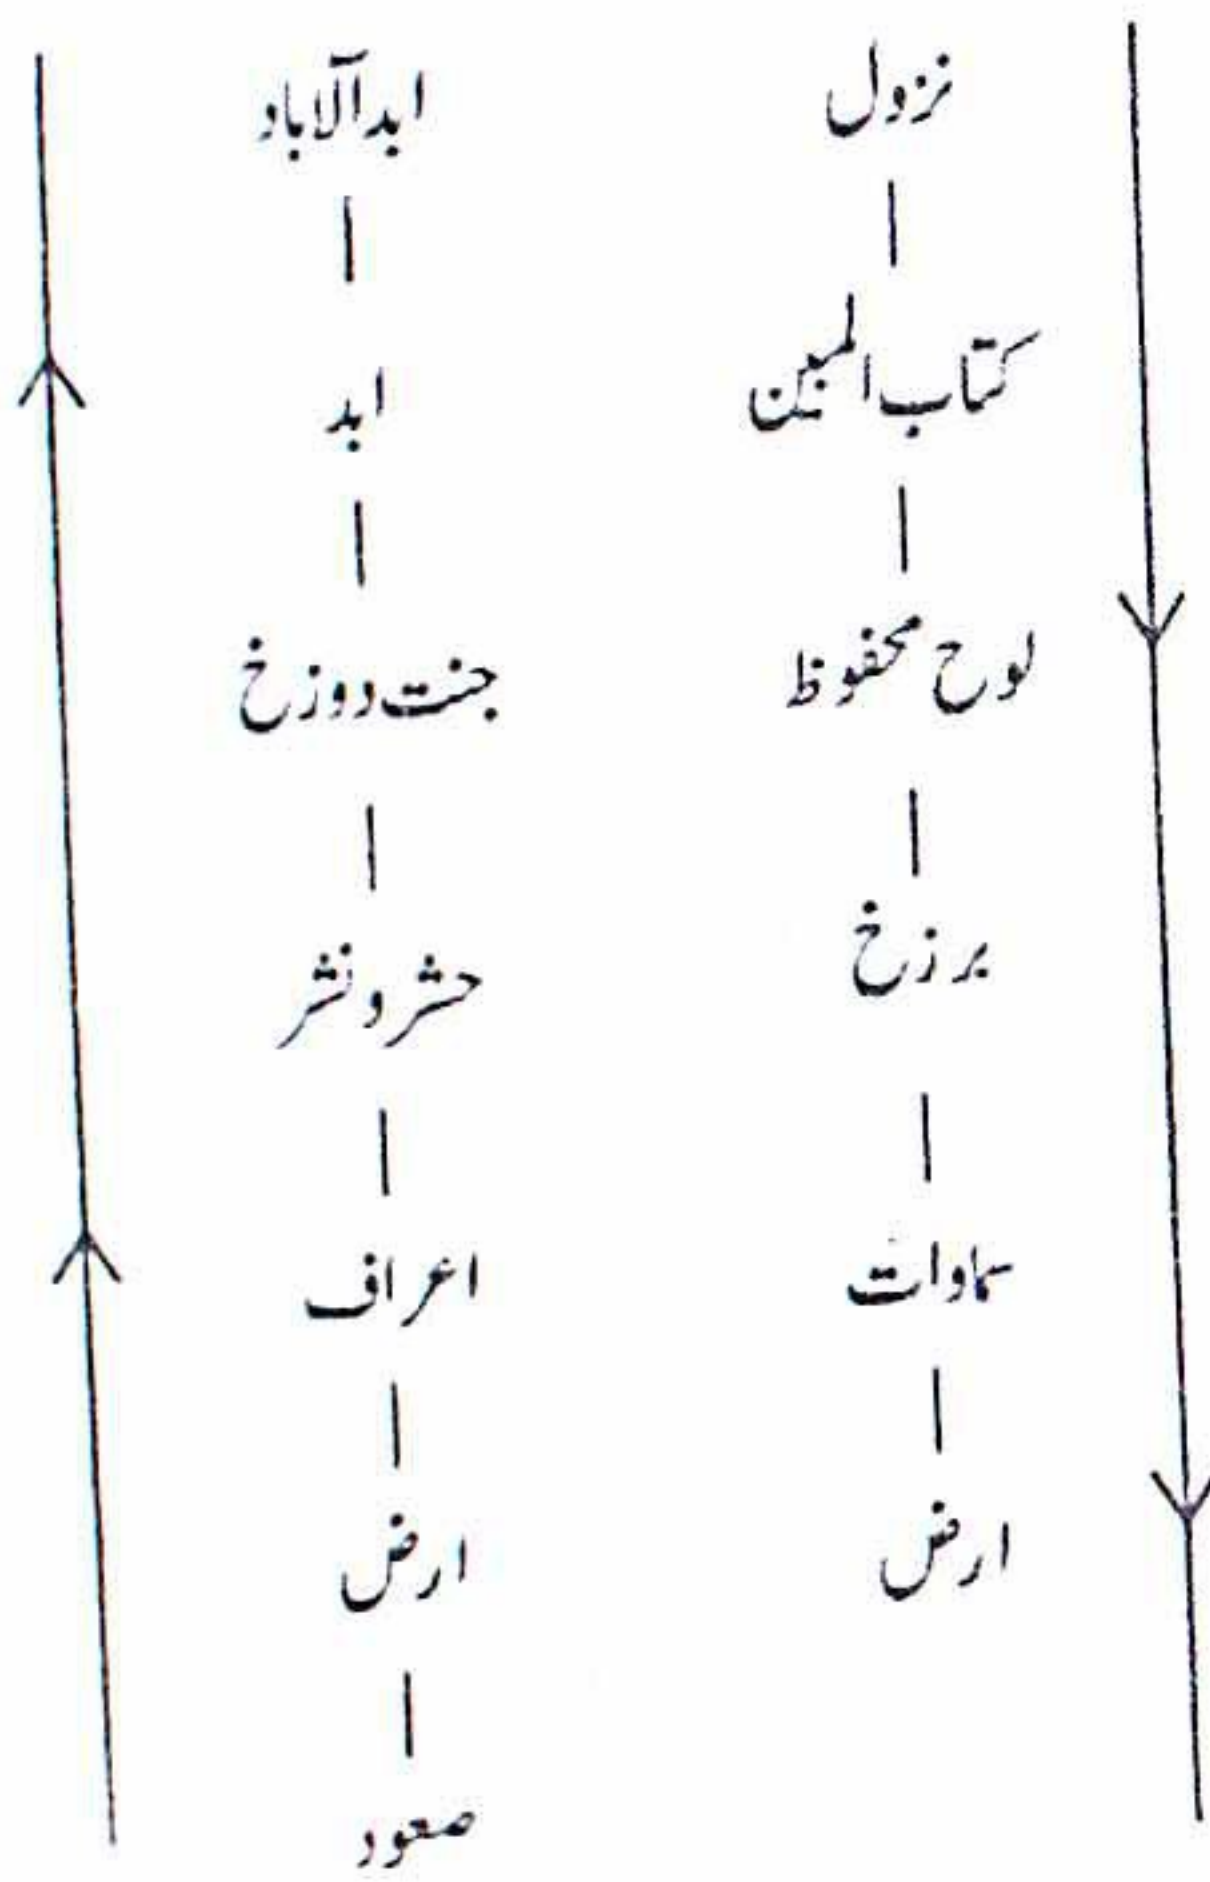 نزول
کتاب المبین
لوح محفوظ
برزخ
سماوات
ارض
ابدالآباد
ابد
جنت دوزخ
حشر و نشر
اعراف
ارض
صعود